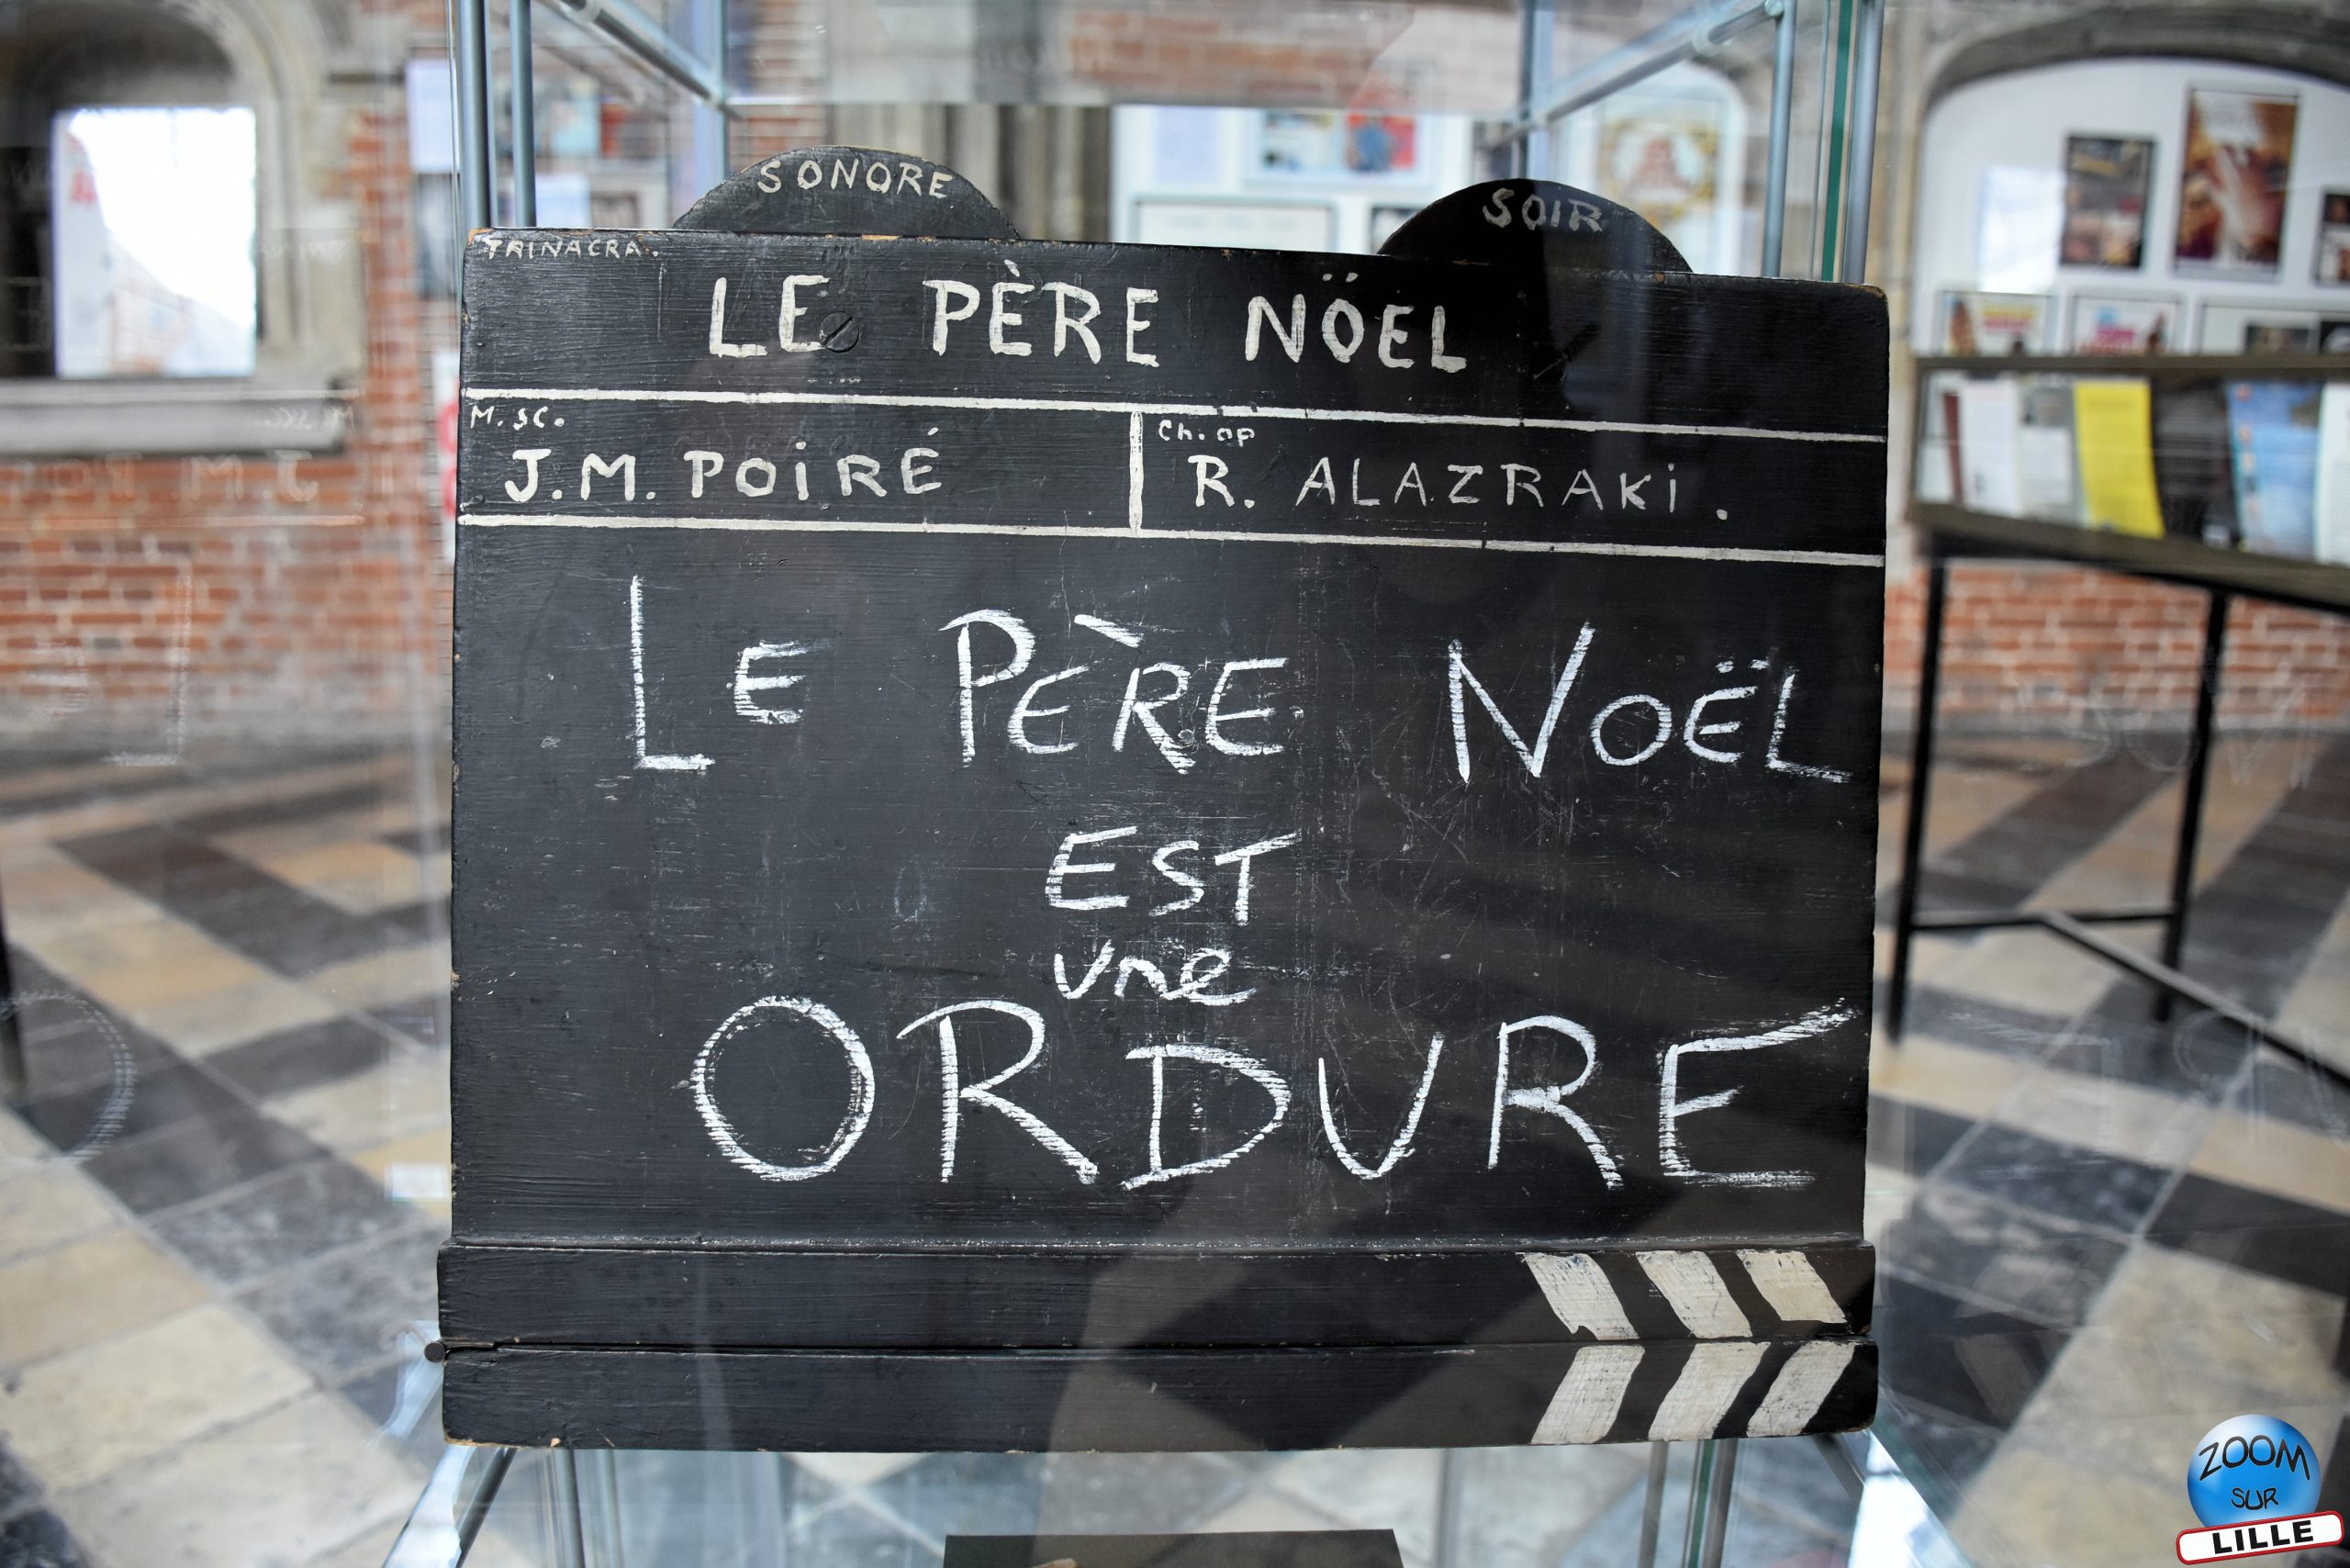 SONORE
SOIR
TRINACRA.
LE PÈRE NÖEL
M.SC.
J.M. POiRÉ
Ch. op
R. ALAZRAKi.
LE PÈRE NOËL
EST
une
ORDURE
ZOOM
SUR
LILLE